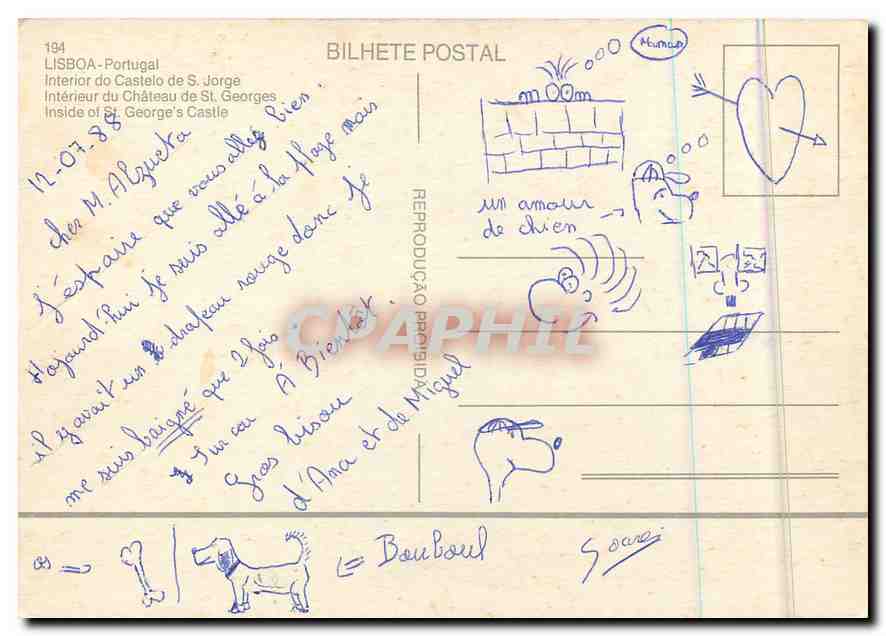 194
LISBOA - Portugal
Interior do Castelo de S. Jorge
Intérieur du Château de St. Georges
Inside of St. George's Castle
BILHETE POSTAL
Maman
12-07-88
cher M. Alzueta
J'éspaire que vous allez bien.
Aujourd'hui je suis allé à la plage mais
il y avait un drapeau rouge donc je
me suis baigné que 2 fois.
À Bientôt.
Gros bisou
d'Ana et de Miguel
REPRODUÇÃO PROIBIDA
un amour
de chien
CPAPHIL
os
Bouboul